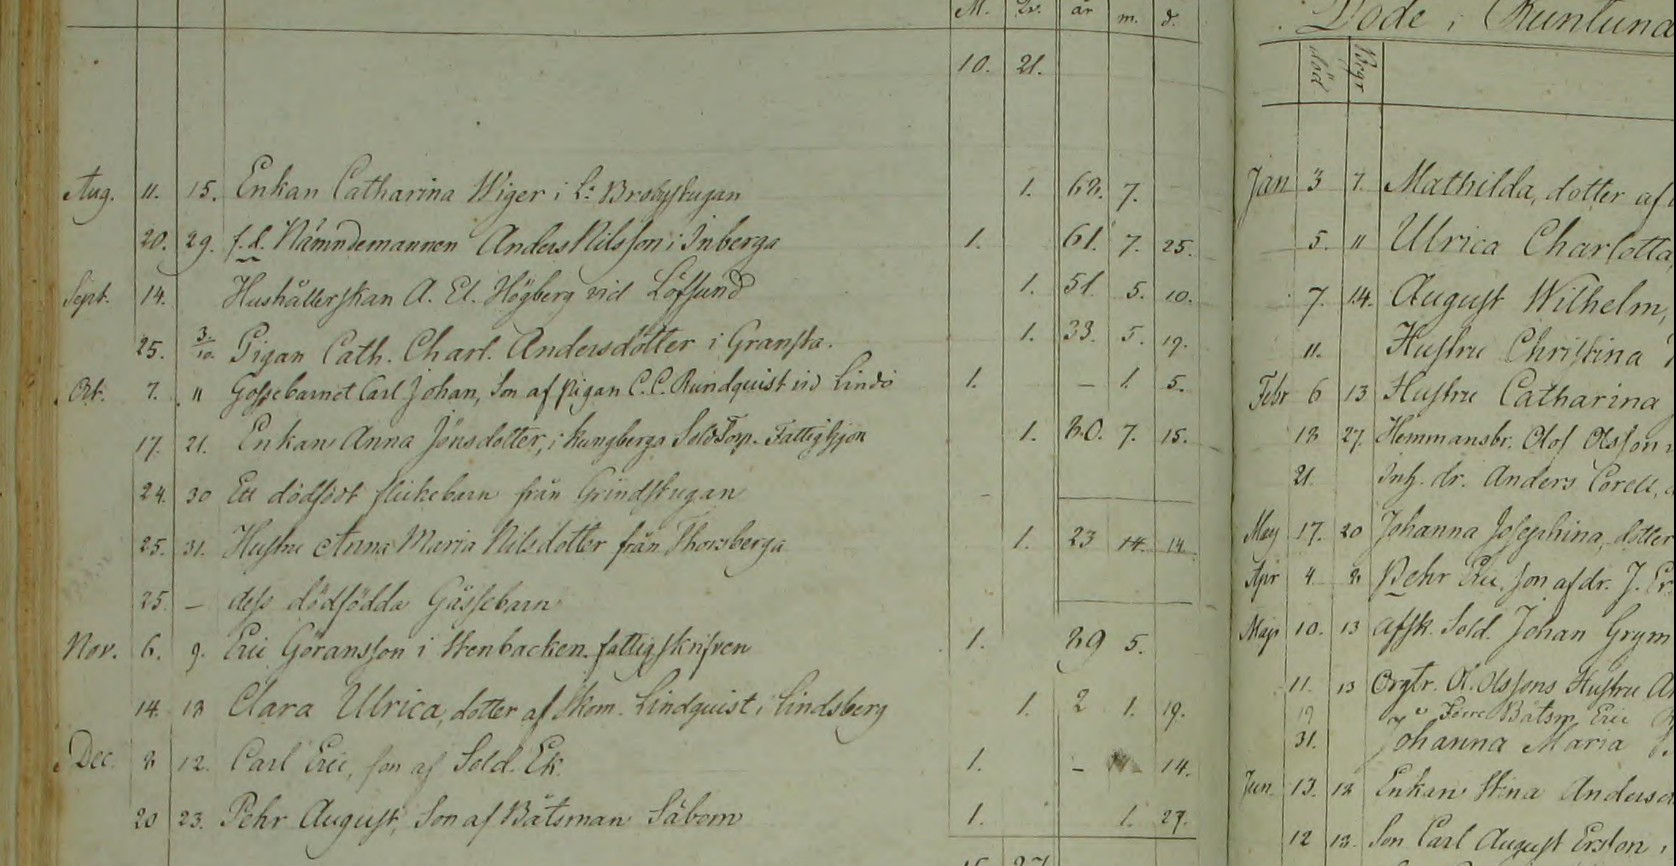 M. Qv. år m. d.
10. 21.
Aug. 11. 15. Enkan Catharina Wiger i L:a Brobystugan 1. 68. 7.
20. 29. f.d. Nämndemannen Anders Nilsson i Inberga 1. 61. 7. 25.
Sept. 14. Hushållerskan A. El. Högberg vid Löfsund 1. 51. 5. 10.
25. 3/10. Pigan Cath. Charl. Andersdotter i Gransta. 1. 33. 5. 19.
Okt. 7. " Gossebarnet Carl Johan, Son af pigan C. C. Rundquist vid Lindö 1. – 1. 5.
17. 21. Enkan Anna Jönsdotter, i Kungberga SoldTorp. Fattighjon 1. 80. 7. 15.
24. 30 Ett dödfödt flickebarn från Grindstugan –
25. 31. Hustru Anna Maria Nilsdotter från Thorsberga 1. 23 11. 14
25. – dess dödfödda Gåssebarn
Nov. 6. 9. Eric Göransson i Stenbacken fattigskrifven 1. 89 5.
14. 18 Clara Ulrica, dotter af Skom. Lindquist i Lindsberg 1. 2 1. 19.
Dec. 8 12. Carl Eric, son af Sold. Ek. 1. – 14.
20 23. Pehr August, Son af Båtsman Säbom 1. 1. 27.
15 27
Döde i Runtuna
död Begr
Jan 3 7. Mathilda, dotter af
5. 11 Ulrica Charlotta,
7. 14. August Wilhelm,
11. Hustru Christina
Febr 6 13 Hustru Catharina
18 27. Hemmansbr. Olof Olsson
21. Inh. dr. Anders Corell,
17. 20 Johanna Josephina, dotter
Apr 4 8 Pehr Eric. son af dr. J. Er
Maji 10. 13 afsk. Sold. Johan Grym
11. 13 Ol. Olssons Hustru
19 Förre Båtsm. Eric
31. Johanna Maria
Jun. 13. 18 Enkan Stina Anders
12 18. Son Carl August Erston